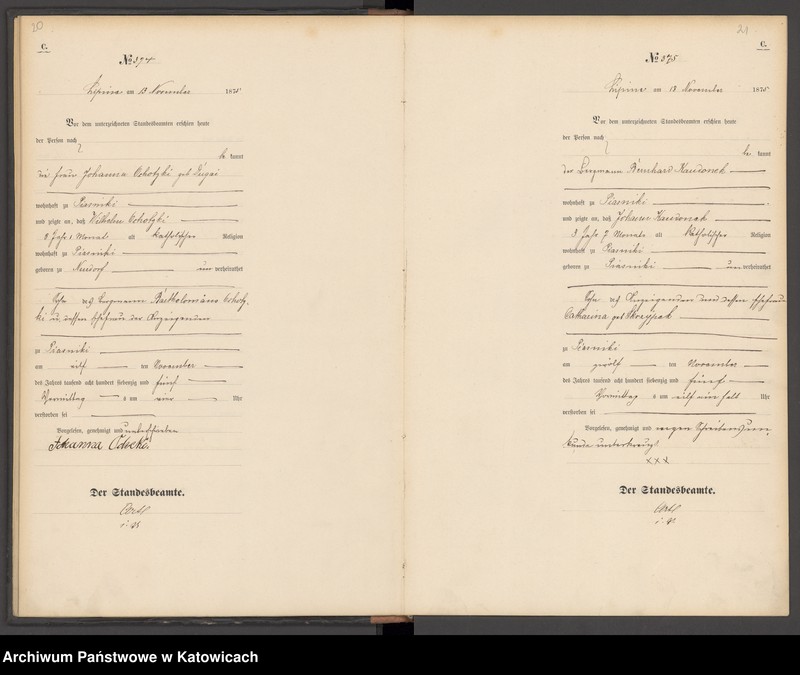 20
C.
№ 374
Lipine am 13 November 1875
Vor dem unterzeichneten Standesbeamten erschien heute
der Person nach
be kannt
die Frau Johanna geb
wohnhaft zu Piasniki
und zeigte an, daß Wilhelm
8 Jahr 1 Monat alt katholischer Religion
wohnhaft zu Piasniki
geboren zu Neudorf un verheirathet
Sohn des Bergmann
u. dessen Ehefrau der Anzeigenden
zu Piasniki
am elf ten November
des Jahres tausend acht hundert siebenzig und fünf
Vormittag s um vier Uhr
verstorben sei
Vorgelesen, genehmigt und unterschrieben
Johanna
Der Standesbeamte.
21
C.
№ 375
Lipine am 13 November 1875
Vor dem unterzeichneten Standesbeamten erschien heute
der Person nach
be kannt
der Bergmann Bernhard
wohnhaft zu Piasniki
und zeigte an, daß Johann
3 Jahr 7 Monate alt katholischer Religion
wohnhaft zu Piasniki
geboren zu Piasniki un verheirathet
Sohn des Anzeigenden und dessen Ehefrau
Catharina geb Skrzypek
zu Piasniki
am zwölf ten November
des Jahres tausend acht hundert siebenzig und fünf
Vormittag s um elf ein halb Uhr
verstorben sei
Vorgelesen, genehmigt und wegen Schreibensun
kunde unterkreuzt
xxx
Der Standesbeamte.
Archiwum Państwowe w Katowicach